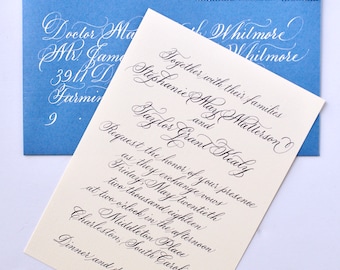 Doctor Ma Whitmore
Mr. Jam Whitmore
3911 D
Farmin
9
Together with their families
Stephanie May Matterson
and
Taylor Grant Healy
Request the honor of your presence
as they exchange vows
Friday, May twentieth
two thousand eighteen
at two o'clock in the afternoon
Middleton Place
Charleston, South Carol
Dinner and d